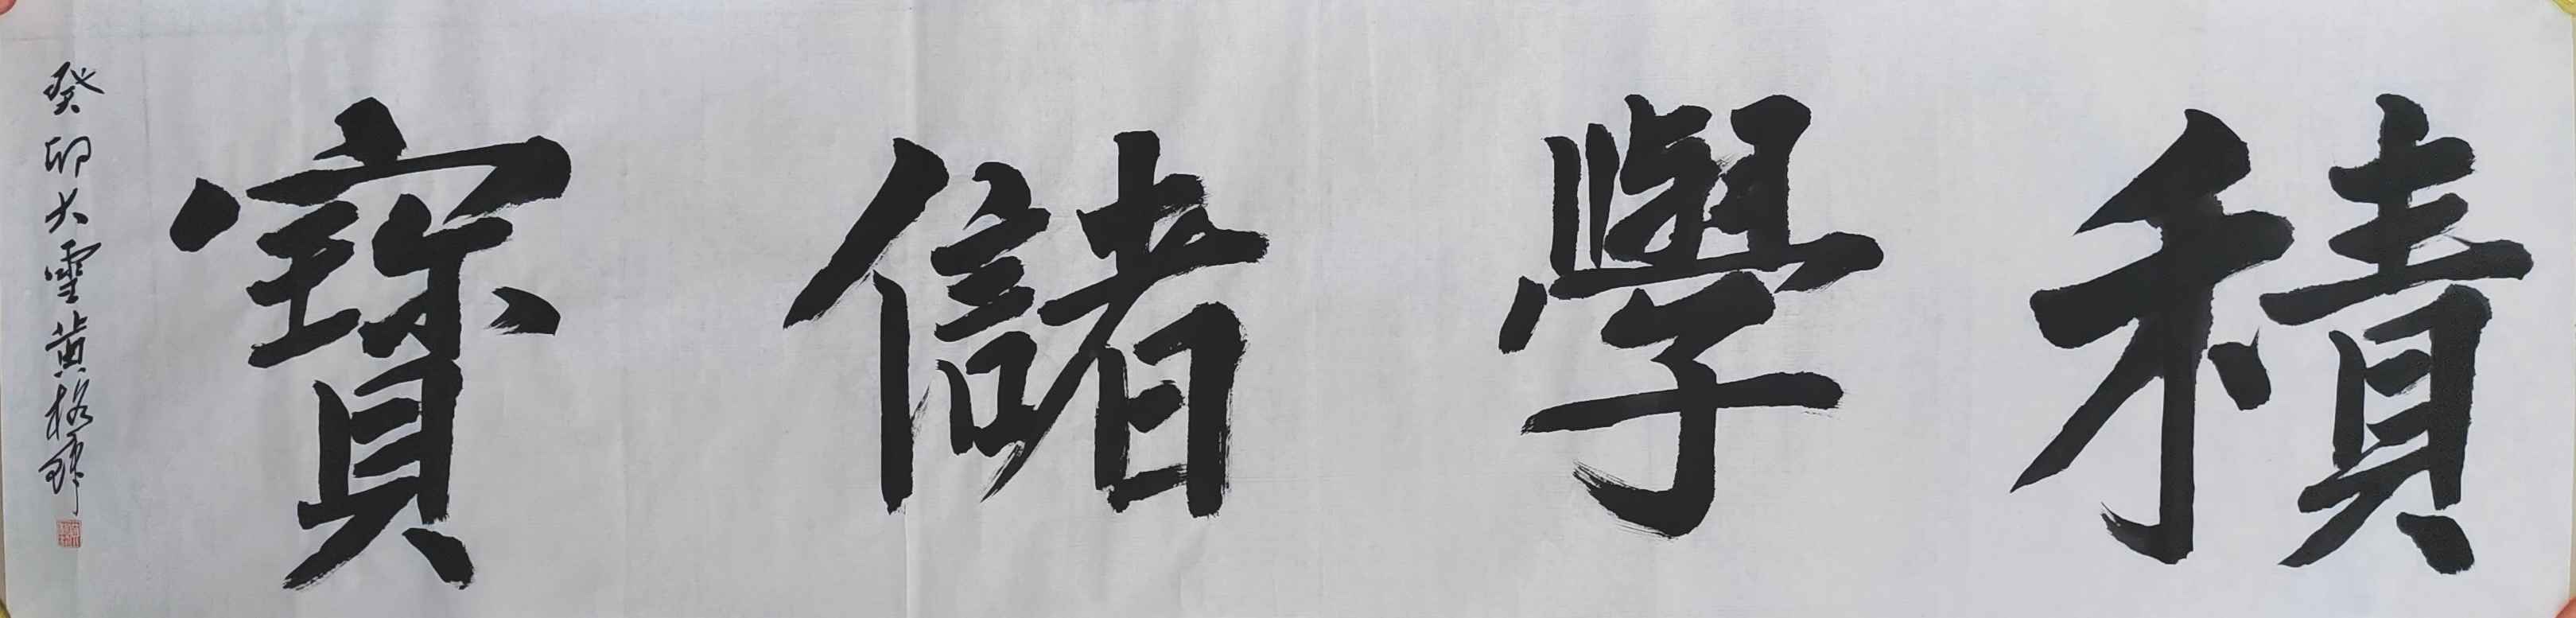 積學儲寶
癸卯大雪黃格